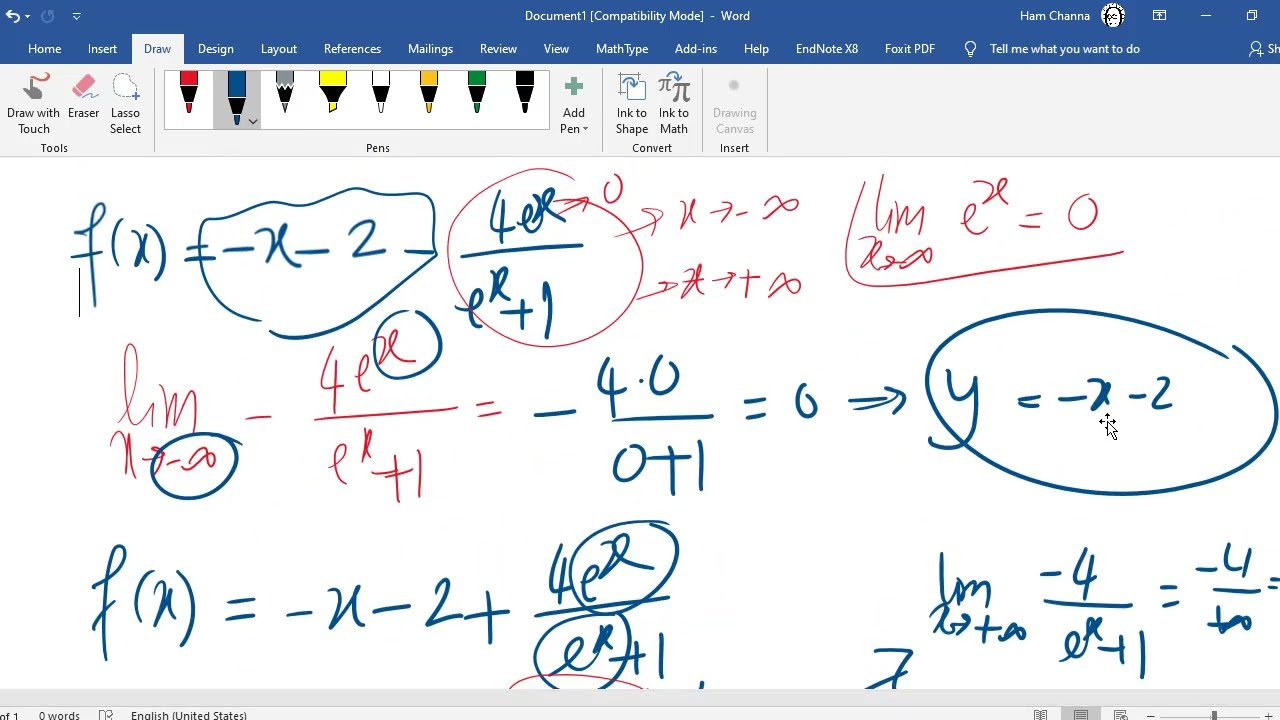 Document1 [Compatibility Mode] - Word
Ham Channa
Home Insert Draw Design Layout References Mailings Review View MathType Add-ins Help EndNote X8 Foxit PDF Tell me what you want to do Sh
Draw with Touch
Eraser
Lasso Select
Add Pen
Ink to Shape
Ink to Math
Drawing Canvas
Tools Pens Convert Insert
f(x) = -x - 2 - 4e^x/(e^x+1) → 0
→ x → -∞
→ x → +∞
lim x→-∞ e^x = 0
lim x→-∞ - 4e^x/(e^x+1) = - 4·0/(0+1) = 0 ⇒ y = -x - 2
f(x) = -x - 2 + 4e^x/(e^x+1)
lim x→+∞ -4/(e^x+1) = -4/+∞ =
of 1 0 words English (United States)